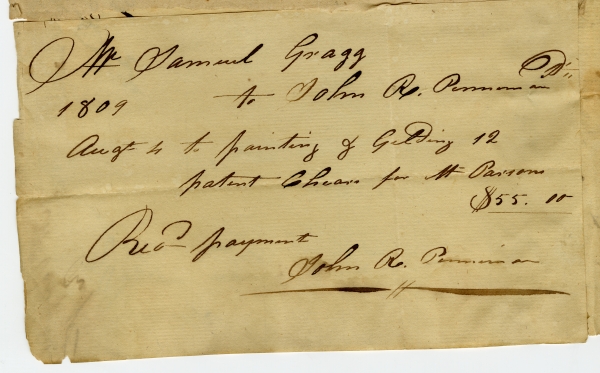 Mr Samuel Gragg
1809 to John R. Penniman Dr.
Augt 4 to painting & Gilding 12
patent Chears for Mr Parsons
$55.00
Recd payment
John R. Penniman